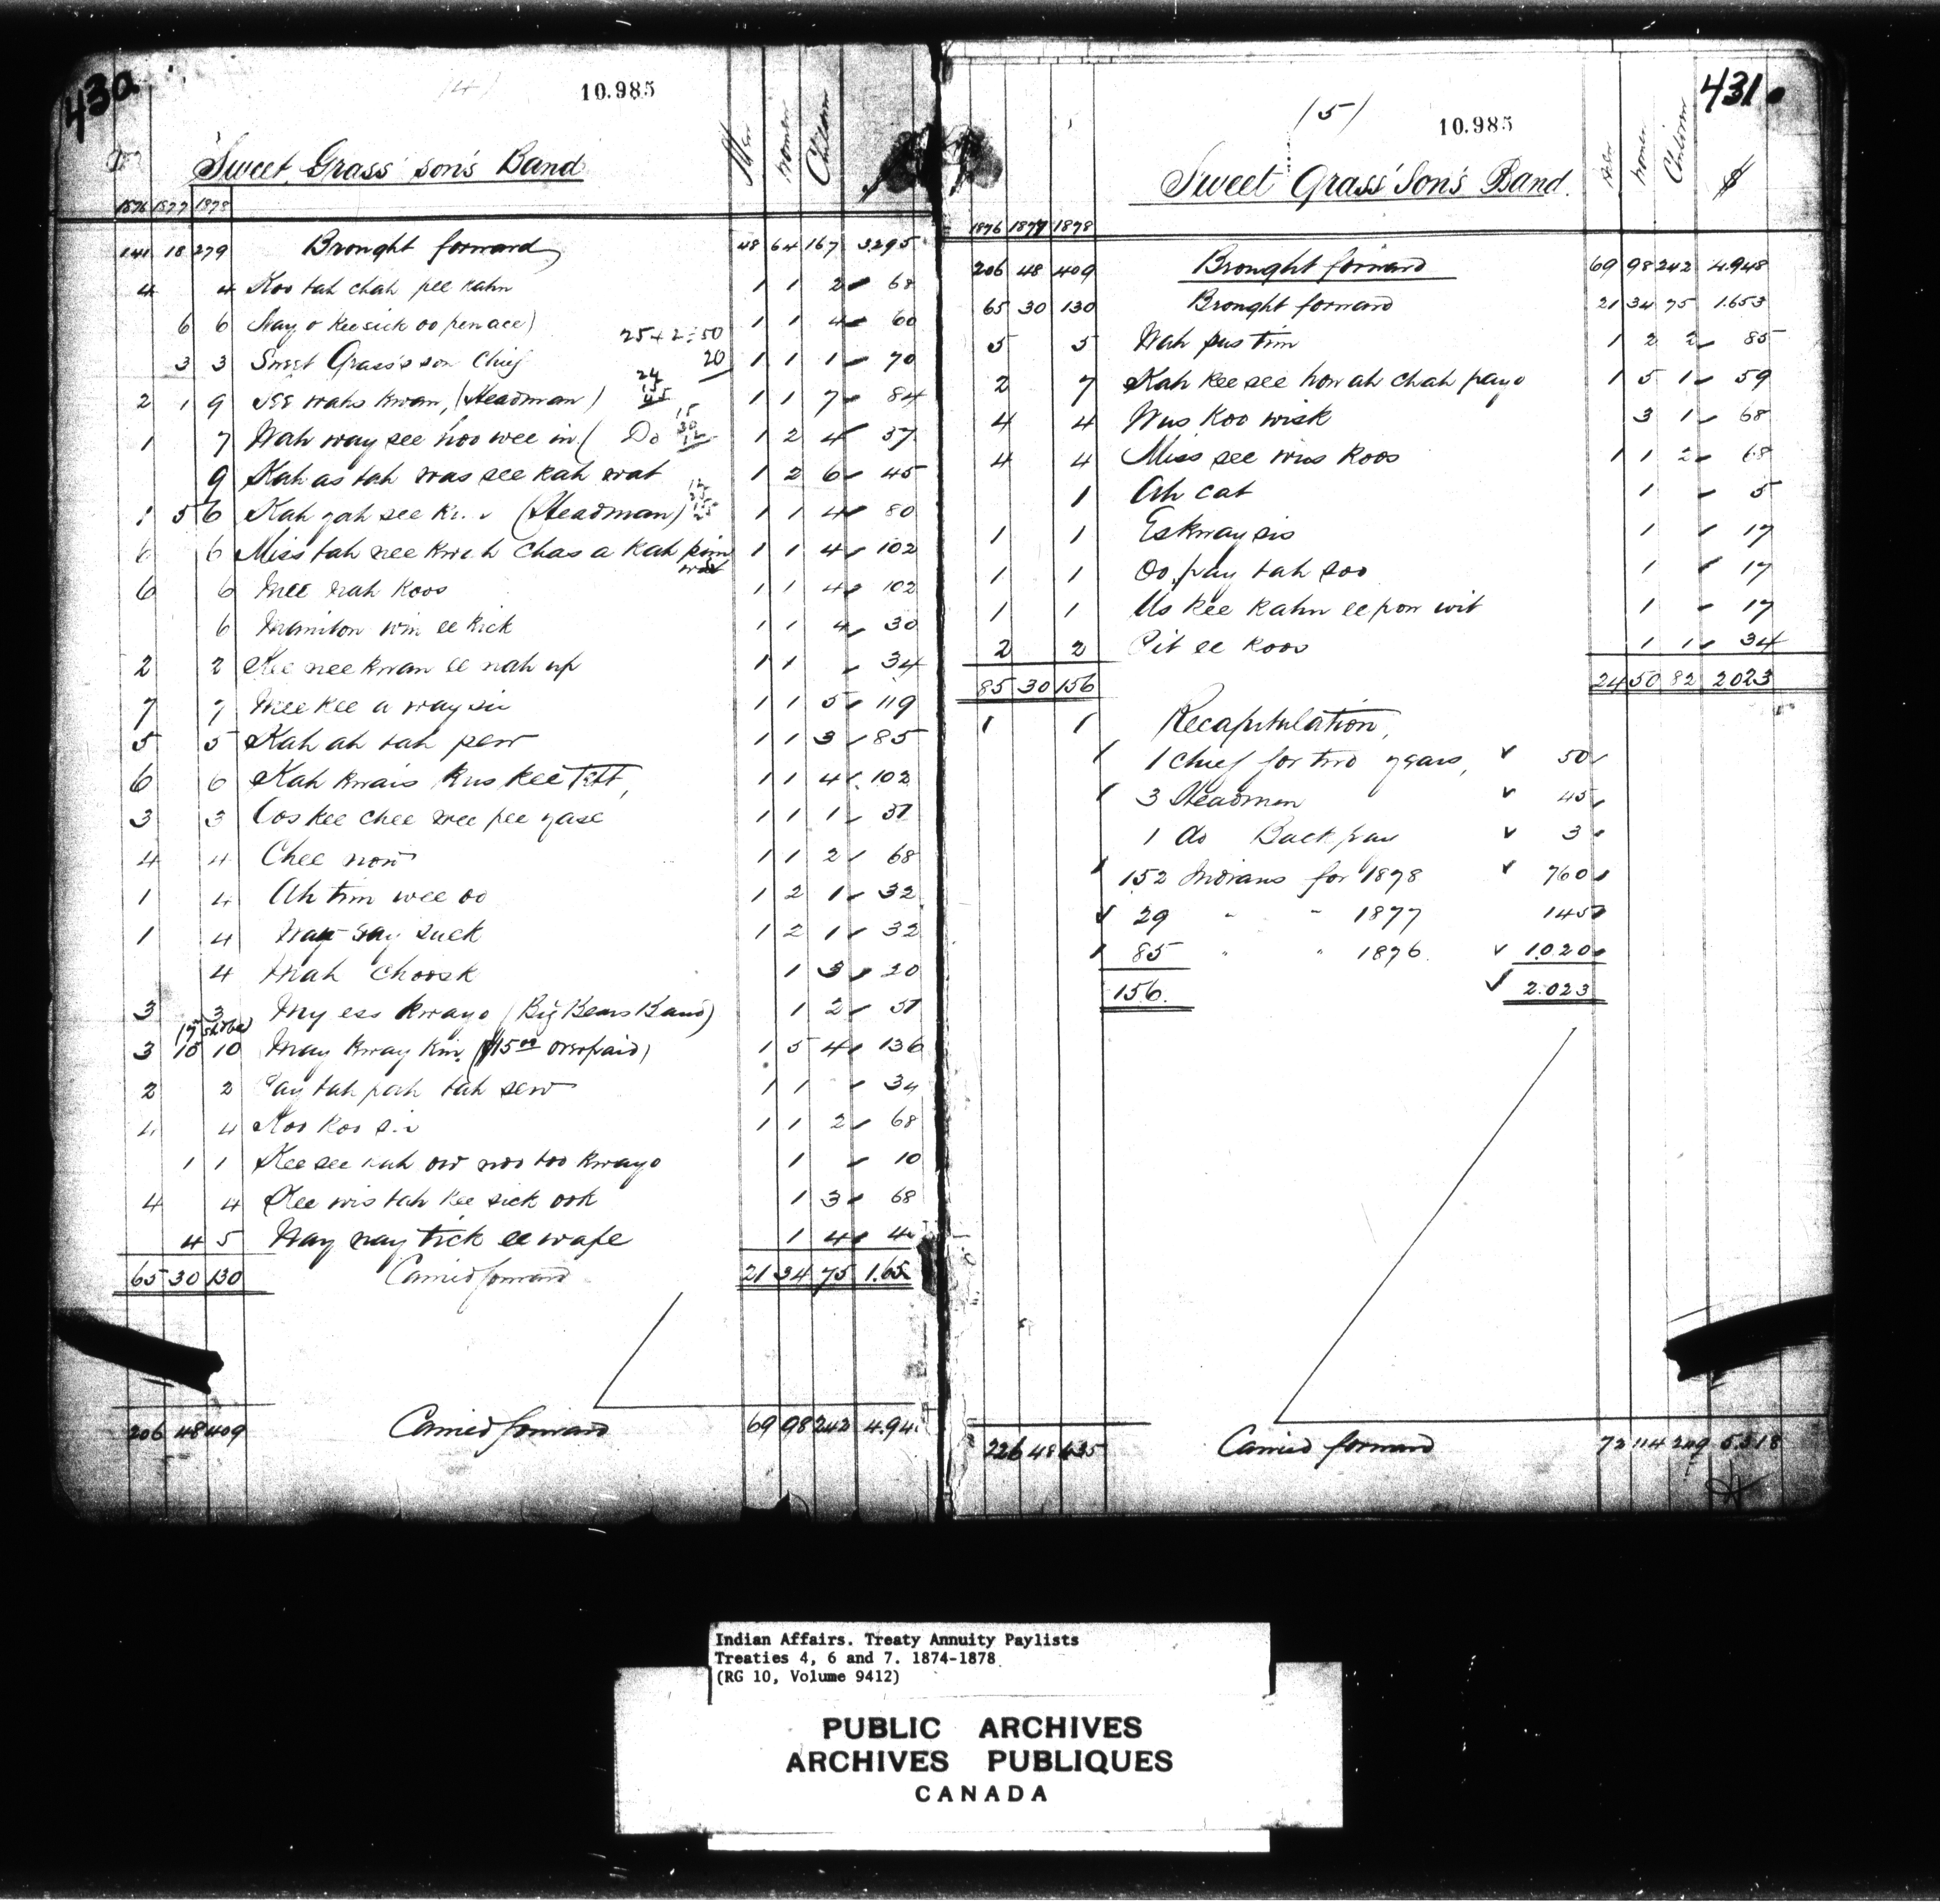 430
(4)
10.985
Sweet Grass' son's Band
Men Women Children
1876 1877 1878
141 18 279 Brought forward 48 64 167 3295
4 4 Koo tah chah pee kahn 1 1 2 68
6 6 Nay o kee sick oo pen ace) 1 1 4 60
25 + 2 = 50
20
3 3 Sweet Grass's son Chief 1 1 1 70
2 1 9 wahs kwan, (Headman) 1 1 7 84
1 7 Wah way see hoo wee in ( Do 1 2 4 37
9 Kah as tah was see kah wat 1 2 6 45
1 5 6 Kah yah see (Headman) 1 1 4 80
6 6 Miss tah nee kwch chas a kah pim wat 1 1 4 102
6 6 Mee nah koos 1 1 4 102
6 Maniton win ee kick 1 1 4 30
2 2 Kee nee kwan ee nah up 1 1 34
7 7 Mee kee a way sis 1 1 5 119
5 5 Kah ah tah pew 1 1 3 85
6 6 Kah kwais kus kee tett, 1 1 4 102
3 3 Oos kee chee wee pee yase 1 1 1 51
4 4 Chee now 1 1 2 68
1 4 Ah tim wee oo 1 2 1 32
1 4 Way say suck 1 2 1 32
4 Mah Choosk 1 3 20
3 3 My ess kwayo (Big Bears Band) 1 2 51
3 15 10 May kway kin ($15.00 overpaid) 1 5 4 136
2 2 Pay tah pah tah sew 1 1 34
4 4 Koo koo 1 1 2 68
1 1 Kee see kah ow noo too kwayo 1 10
4 4 Kee wis tah kee sick ook 1 3 68
4 5 Way nay tick ee wape 1 4
65 30 130 Carried forward 21 34 75 1.65
206 48 409 Carried forward 69 98 242 4.94
431
(5)
10.985
Sweet Grass' Son's Band.
Men Women Children $
1876 1877 1878
206 48 409 Brought forward 69 98 242 4.948
65 30 130 Brought forward 21 34 75 1.653
5 5 Wah pus tim 1 2 2 85
2 7 Kah kee see how ah chah payo 1 5 1 59
4 4 Wus koo wisk 3 1 68
4 4 Miss see wus koos 1 1 2 68
1 Ah cat 1 5
1 1 Eskway sis 1 17
1 1 Oo pay tah soo 1 17
1 1 Us kee kahn ee pow wit 1 17
2 2 Pit ee koos 1 1 34
85 30 156 24 50 82 2023
1 1 Recapitulation,
1 chief for two years, 50
3 Headmen 45
1 do Back pay 3
152 Indians for 1878 760
29 " " 1877 145
85 " " 1876 1.020
156. 2.023
226 48 435 Carried forward 72 114 249 5.318
Indian Affairs. Treaty Annuity Paylists
Treaties 4, 6 and 7. 1874-1878
(RG 10, Volume 9412)
PUBLIC ARCHIVES
ARCHIVES PUBLIQUES
CANADA